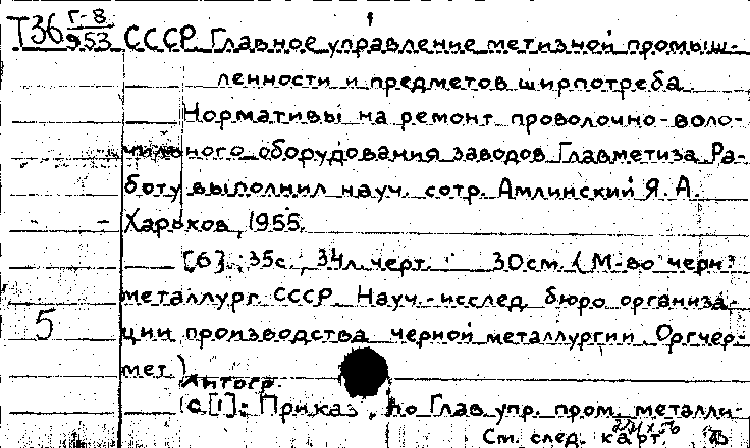 Т36 Г-8 953 СССР Главное управление метизной промыш-
ленности и предметов ширпотреба.
Нормативы на ремонт проволочно-воло-
чильного оборудования заводов Главметиза. Ра-
боту выполнил науч. сотр. Амлинский Я. А.
Харьков, 1955.
[6], 35с., 34л.черт. 30см. (М-во черн.
металлург. СССР. Науч.-исслед. бюро организа-
5 ции производства черной металлургии. Оргчер-
мет.)
Литогр.
с.[1]: Приказ, по Глав. упр. пром. металли-
См. след. карт.